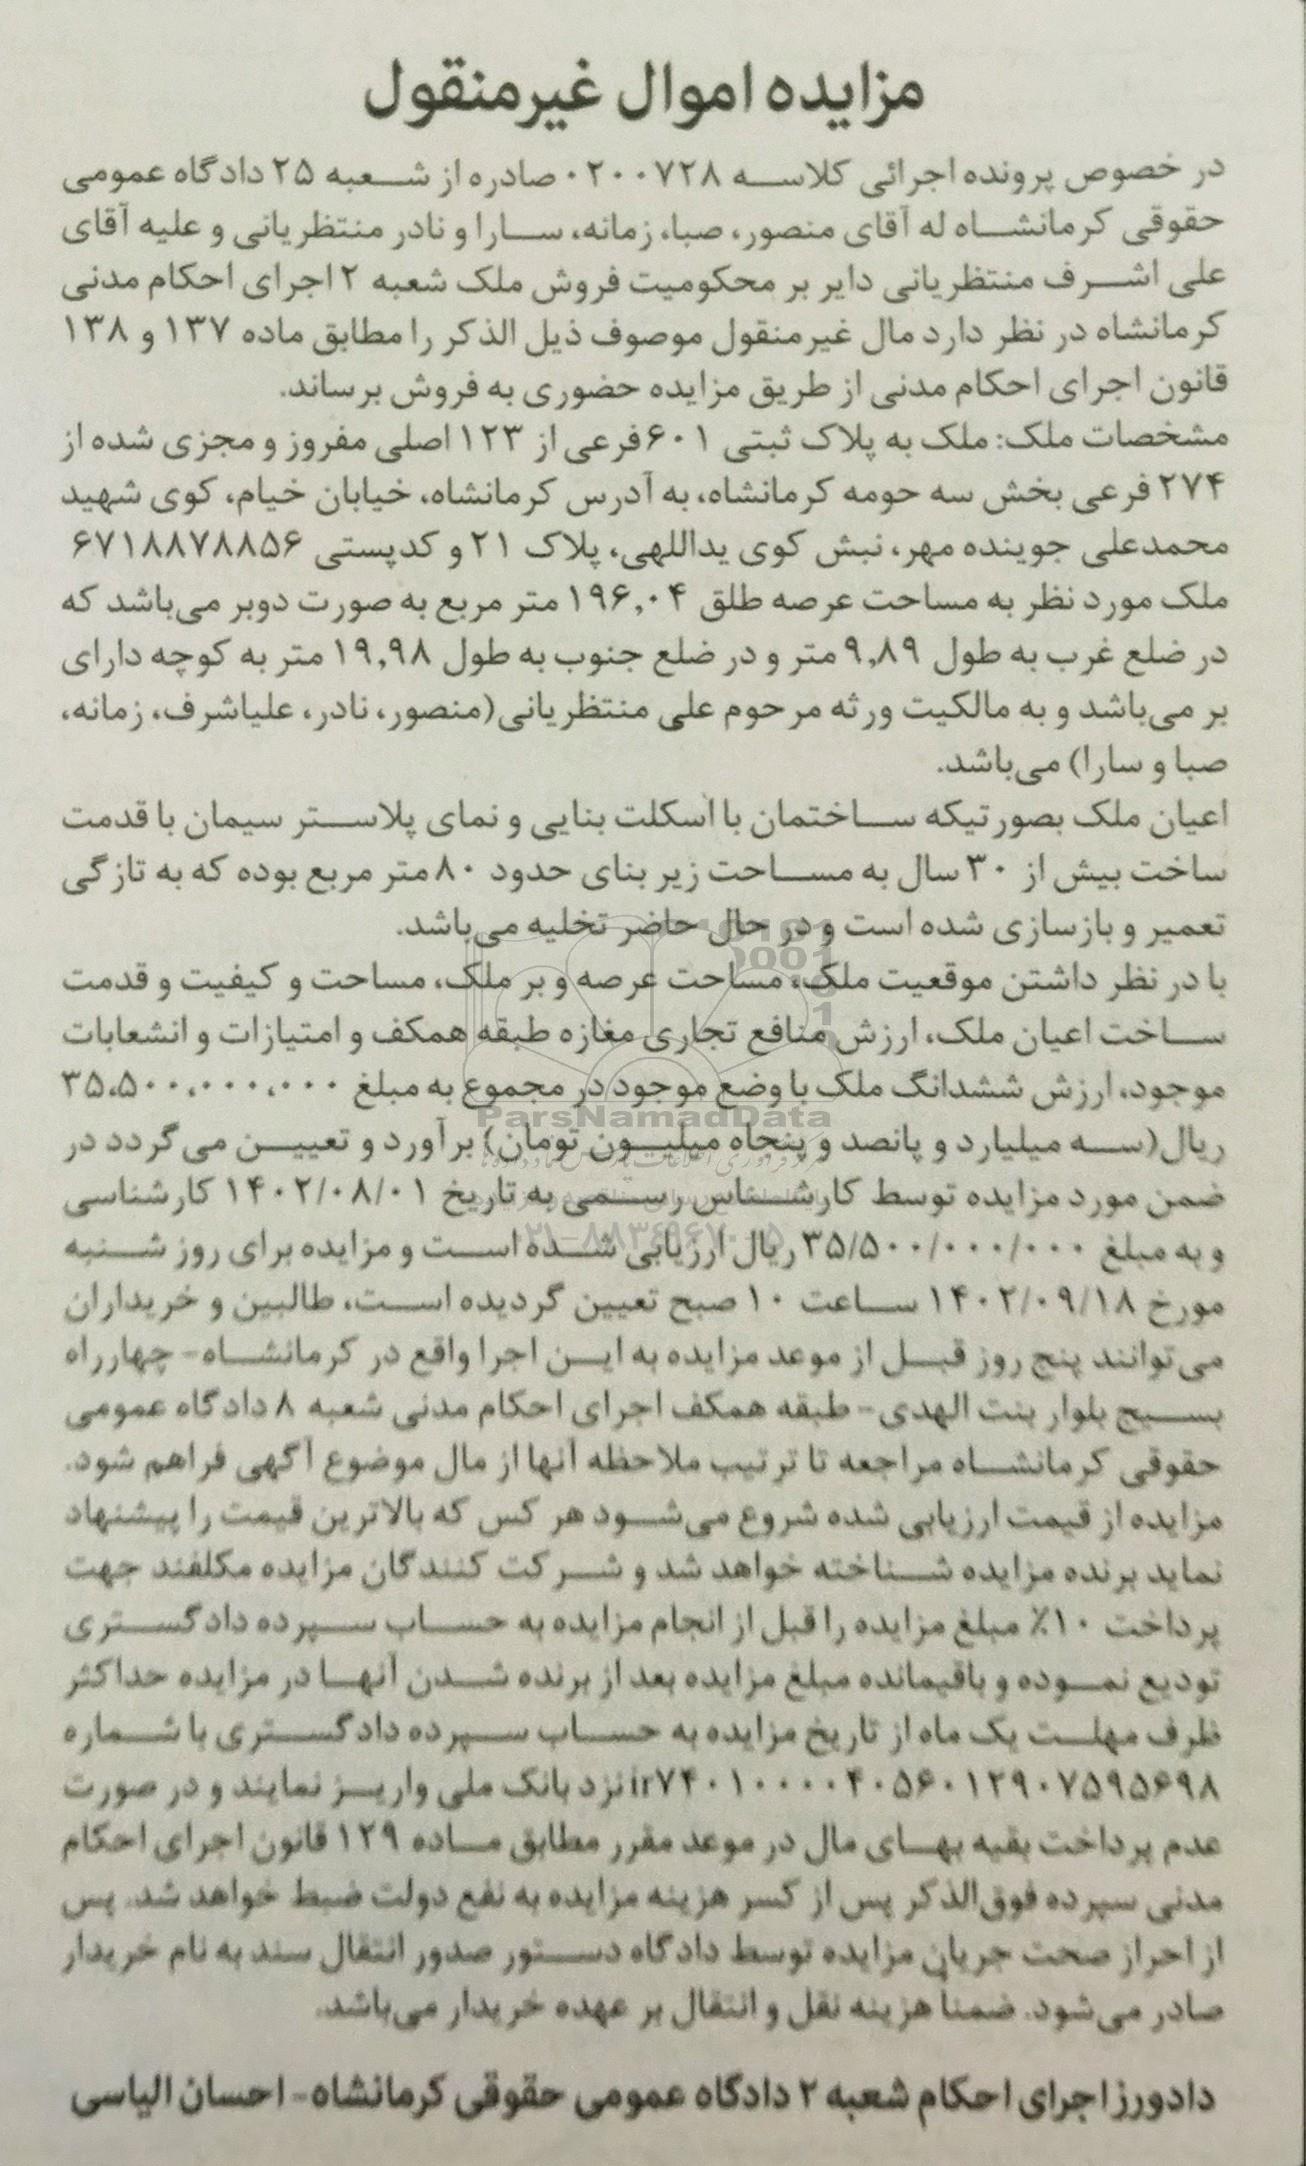 مزایده اموال غیرمنقول
در خصوص پرونده اجرائی کلاسه ۰۲۰۰۷۲۸ صادره از شعبه ۲۵ دادگاه عمومی
حقوقی کرمانشاه له آقای منصور، صبا، زمانه، سارا و نادر منتظریانی و علیه آقای
علی اشرف منتظریانی دایر بر محکومیت فروش ملک شعبه ۲ اجرای احکام مدنی
کرمانشاه در نظر دارد مال غیرمنقول موصوف ذیل الذکر را مطابق ماده ۱۳۷ و ۱۳۸
قانون اجرای احکام مدنی از طریق مزایده حضوری به فروش برساند.
مشخصات ملک: ملک به پلاک ثبتی ۶۰۱ فرعی از ۱۲۳ اصلی مفروز و مجزی شده از
۲۷۴ فرعی بخش سه حومه کرمانشاه، به آدرس کرمانشاه، خیابان خیام، کوی شهید
محمدعلی جوینده مهر، نبش کوی یداللهی، پلاک ۲۱ و کدپستی ۶۷۱۸۸۷۸۸۵۶
ملک مورد نظر به مساحت عرصه طلق ۱۹۶,۰۴ متر مربع به صورت دوبر می‌باشد که
در ضلع غرب به طول ۹,۸۹ متر و در ضلع جنوب به طول ۱۹,۹۸ متر به کوچه دارای
بر می‌باشد و به مالکیت ورثه مرحوم علی منتظریانی(منصور، نادر، علیاشرف، زمانه،
صبا و سارا) می‌باشد.
اعیان ملک بصورتیکه ساختمان با اسکلت بنایی و نمای پلاستر سیمان با قدمت
ساخت بیش از ۳۰ سال به مساحت زیر بنای حدود ۸۰ متر مربع بوده که به تازگی
تعمیر و بازسازی شده است و در حال حاضر تخلیه می‌باشد.
با در نظر داشتن موقعیت ملک، مساحت عرصه و بر ملک، مساحت و کیفیت و قدمت
ساخت اعیان ملک، ارزش منافع تجاری مغازه طبقه همکف و امتیازات و انشعابات
موجود، ارزش ششدانگ ملک با وضع موجود در مجموع به مبلغ ۳۵،۵۰۰،۰۰۰،۰۰۰
ParsNamadData
ریال(سه میلیارد و پانصد و پنجاه میلیون تومان) برآورد و تعیین می گردد در
ضمن مورد مزایده توسط کارشناس رسمی به تاریخ ۱۴۰۲/۰۸/۰۱ کارشناسی
۰۲۱-۸۸۳۴۹۶۷۰-۵
و به مبلغ ۳۵/۵۰۰/۰۰۰/۰۰۰ ریال ارزیابی شده است و مزایده برای روز شنبه
مورخ ۱۴۰۲/۰۹/۱۸ ساعت ۱۰ صبح تعیین گردیده است، طالبین و خریداران
می‌توانند پنج روز قبل از موعد مزایده به این اجرا واقع در کرمانشاه- چهارراه
بسیج بلوار بنت الهدی- طبقه همکف اجرای احکام مدنی شعبه ۸ دادگاه عمومی
حقوقی کرمانشاه مراجعه تا ترتیب ملاحظه آنها از مال موضوع آگهی فراهم شود.
مزایده از قیمت ارزیابی شده شروع می‌شود هر کس که بالاترین قیمت را پیشنهاد
نماید برنده مزایده شناخته خواهد شد و شرکت کنندگان مزایده مکلفند جهت
پرداخت ۱۰٪ مبلغ مزایده را قبل از انجام مزایده به حساب سپرده دادگستری
تودیع نموده و باقیمانده مبلغ مزایده بعد از برنده شدن آنها در مزایده حداکثر
ظرف مهلت یک ماه از تاریخ مزایده به حساب سپرده دادگستری با شماره
ir۷۴۰۱۰۰۰۰۴۰۵۶۰۱۲۹۰۷۵۹۵۶۹۸ نزد بانک ملی واریز نمایند و در صورت
عدم پرداخت بقیه بهای مال در موعد مقرر مطابق ماده ۱۲۹ قانون اجرای احکام
مدنی سپرده فوق‌الذکر پس از کسر هزینه مزایده به نفع دولت ضبط خواهد شد. پس
از احراز صحت جریان مزایده توسط دادگاه دستور صدور انتقال سند به نام خریدار
صادر می‌شود. ضمنا هزینه نقل و انتقال بر عهده خریدار می‌باشد.
دادورز اجرای احکام شعبه ۲ دادگاه عمومی حقوقی کرمانشاه- احسان الیاسی